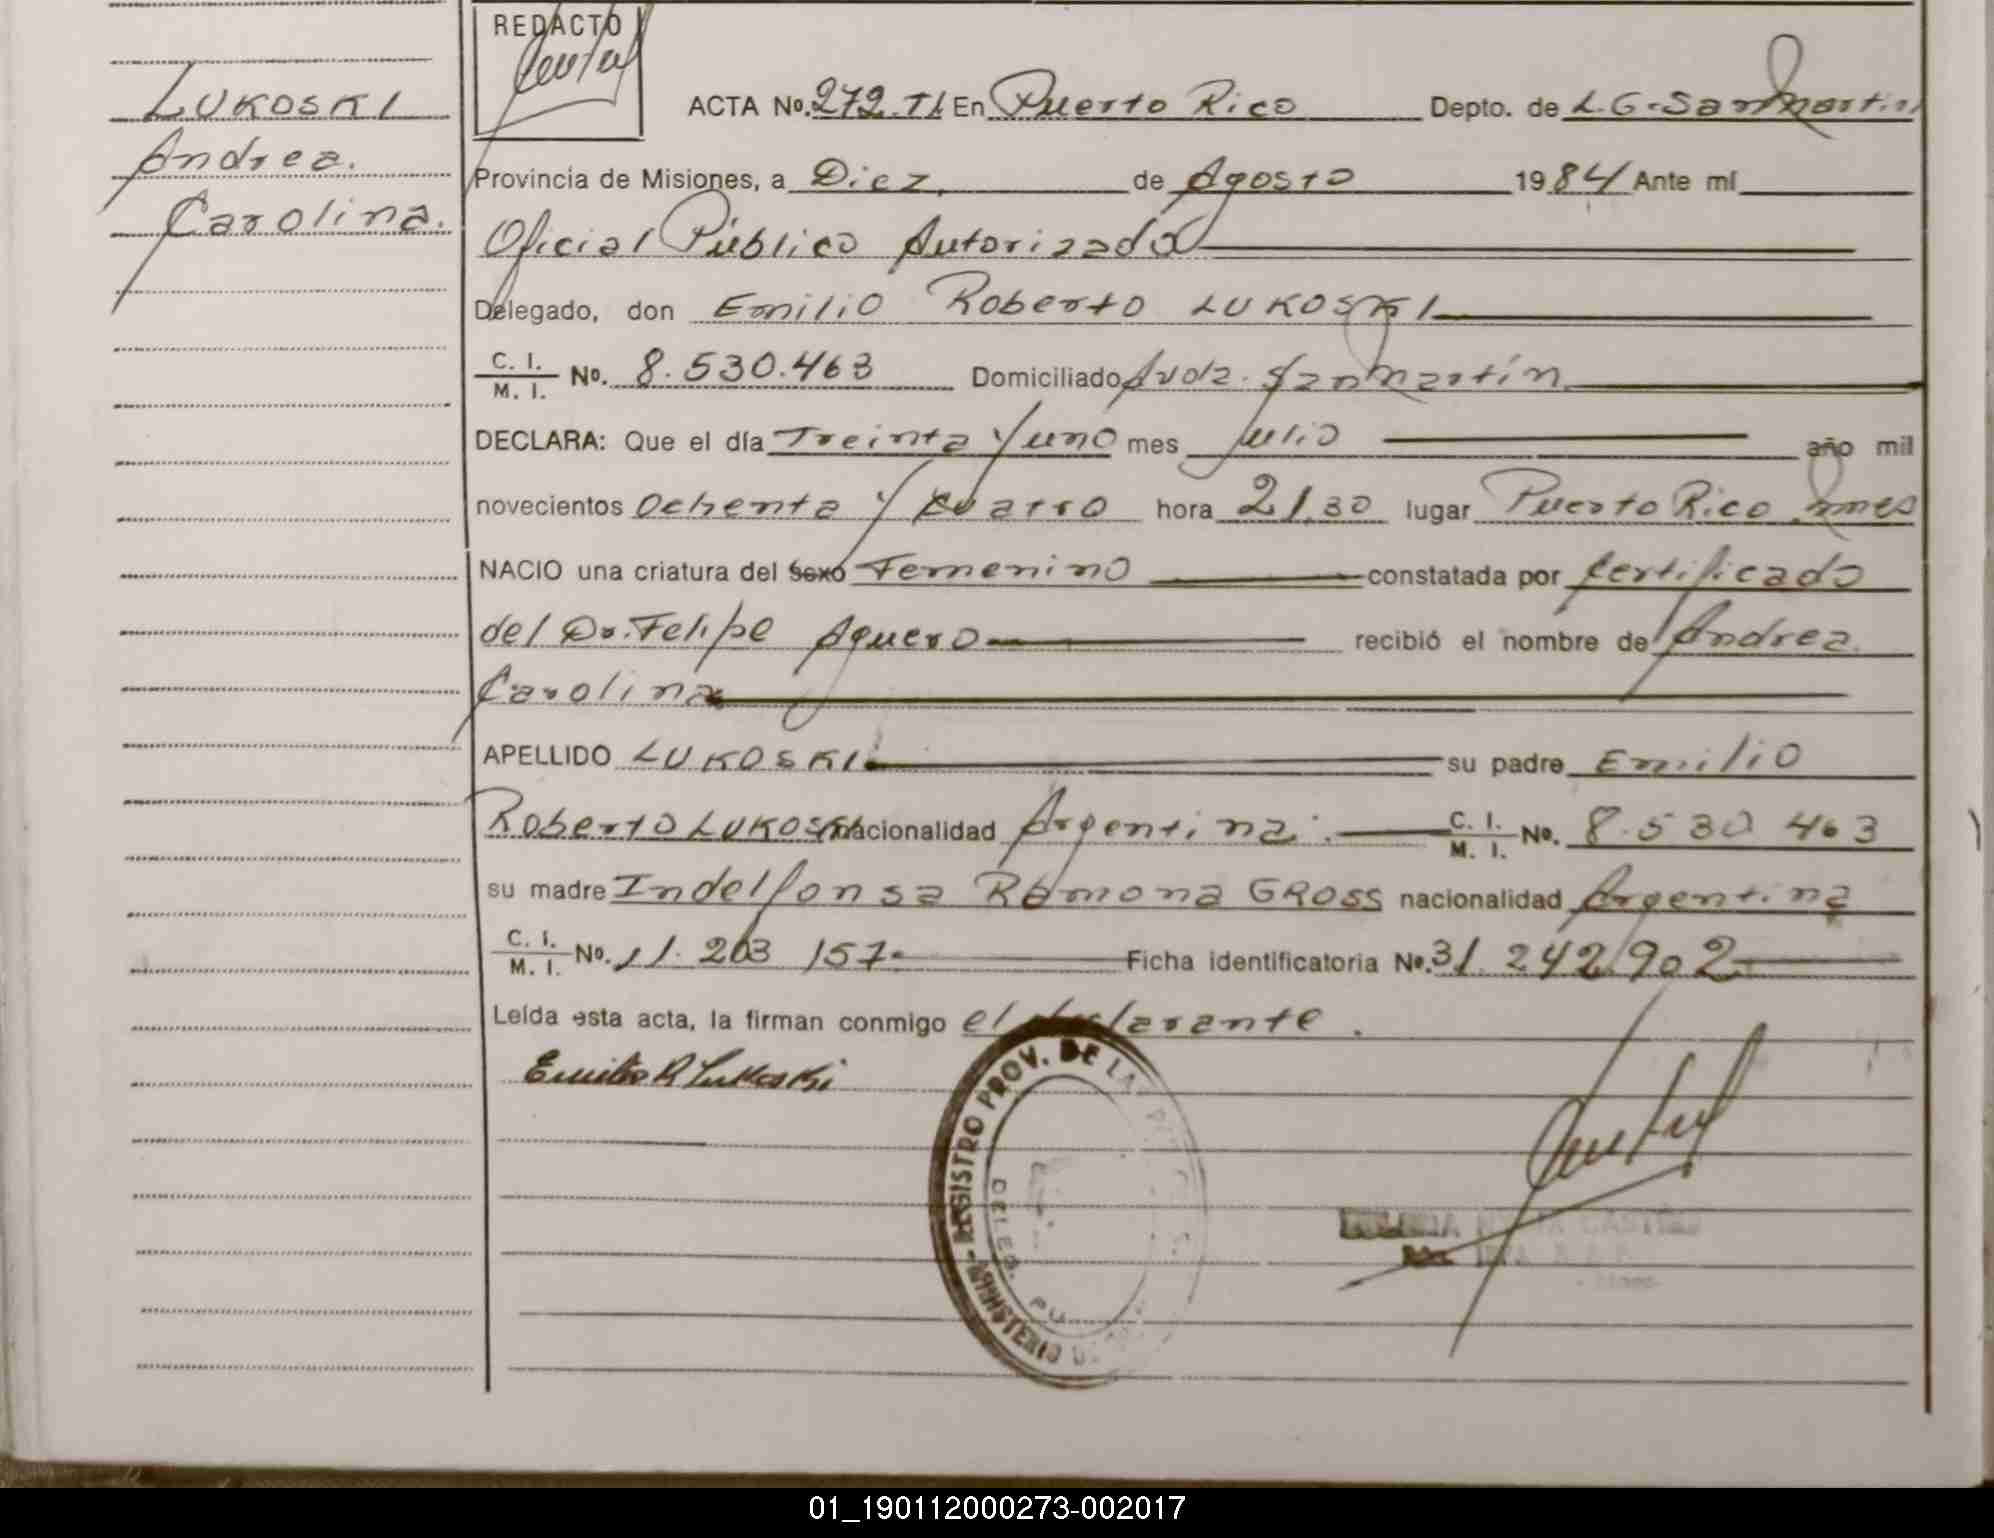 REDACTO
LUKOSKI
Andrea.
Carolina.
ACTA No. 272.TI En Puerto Rico Depto. de L.G.SanMartin
Provincia de Misiones, a Diez, de Agosto 1984 Ante mí
Oficial Público Autorizado
Delegado, don Emilio Roberto LUKOSKI
C. I.
M. I. No. 8.530.463 Domiciliado Avda. SanMartín
DECLARA: Que el día Treinta y uno mes Julio año mil
novecientos Ochenta y Cuatro hora 21,30 lugar Puerto Rico Mnes
NACIO una criatura del sexo Femenino constatada por Certificado
del Dr. Felipe Aguero recibió el nombre de Andrea.
Carolina
APELLIDO LUKOSKI su padre Emilio
Roberto LUKOSKI nacionalidad Argentina. C. I.
M. I. No. 8.530 463
su madre Indelfonsa Ramona GROSS nacionalidad Argentina
C. I.
M. I. No. 11.203 157 Ficha identificatoria No. 31.242.902
Leída esta acta, la firman conmigo el declarante.
Emilio R Lukoski
REGISTRO PROV. DE LAS
DELEG. PU
01_190112000273-002017